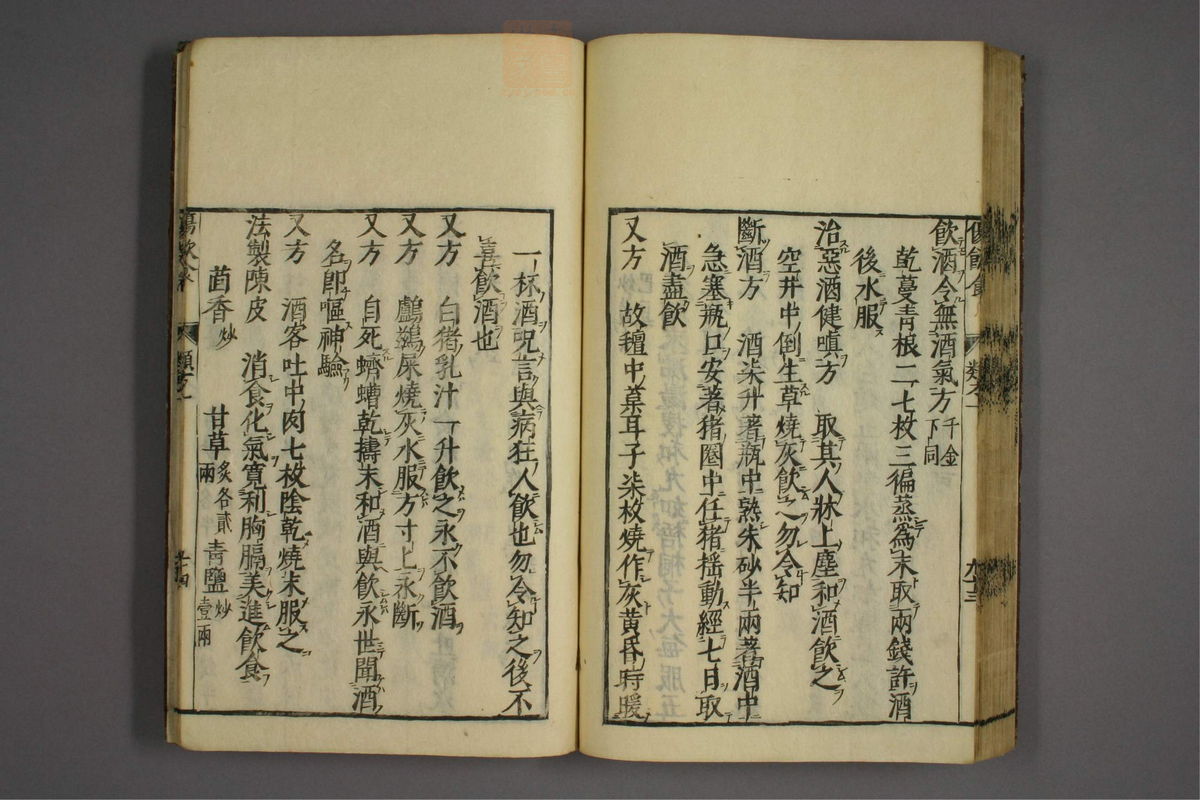 飲酒令無酒氣方 千金下同
乾蔓青根二七枚三徧蒸為末取兩錢許酒
後水服
治惡酒健嗔方 取其人牀上塵和酒飲之
空井中倒生草燒灰飲之勿令知
斷酒方 酒柒升著瓶中熟朱砂半兩著酒中
急塞瓶口安著猪圈中任猪揺動經七日取
酒盡飲
又方 故氊中菒耳子柒枚燒作灰黃昏時暖
一杯酒呪言與病狂人飲也勿令知之後不
喜飲酒也
又方 白猪乳汁一升飲之永不飲酒
又方 鸕鷀屎燒灰水服方寸上永斷
又方 自死蠐螬乾擣末和酒與飲永世聞酒
名即嘔神驗
又方 酒客吐中肉七枚陰乾燒末服之
法製陳皮 消食化氣寛利胸膈美進飲食
茴香炒 甘草炙各貳兩 青鹽炒壹兩